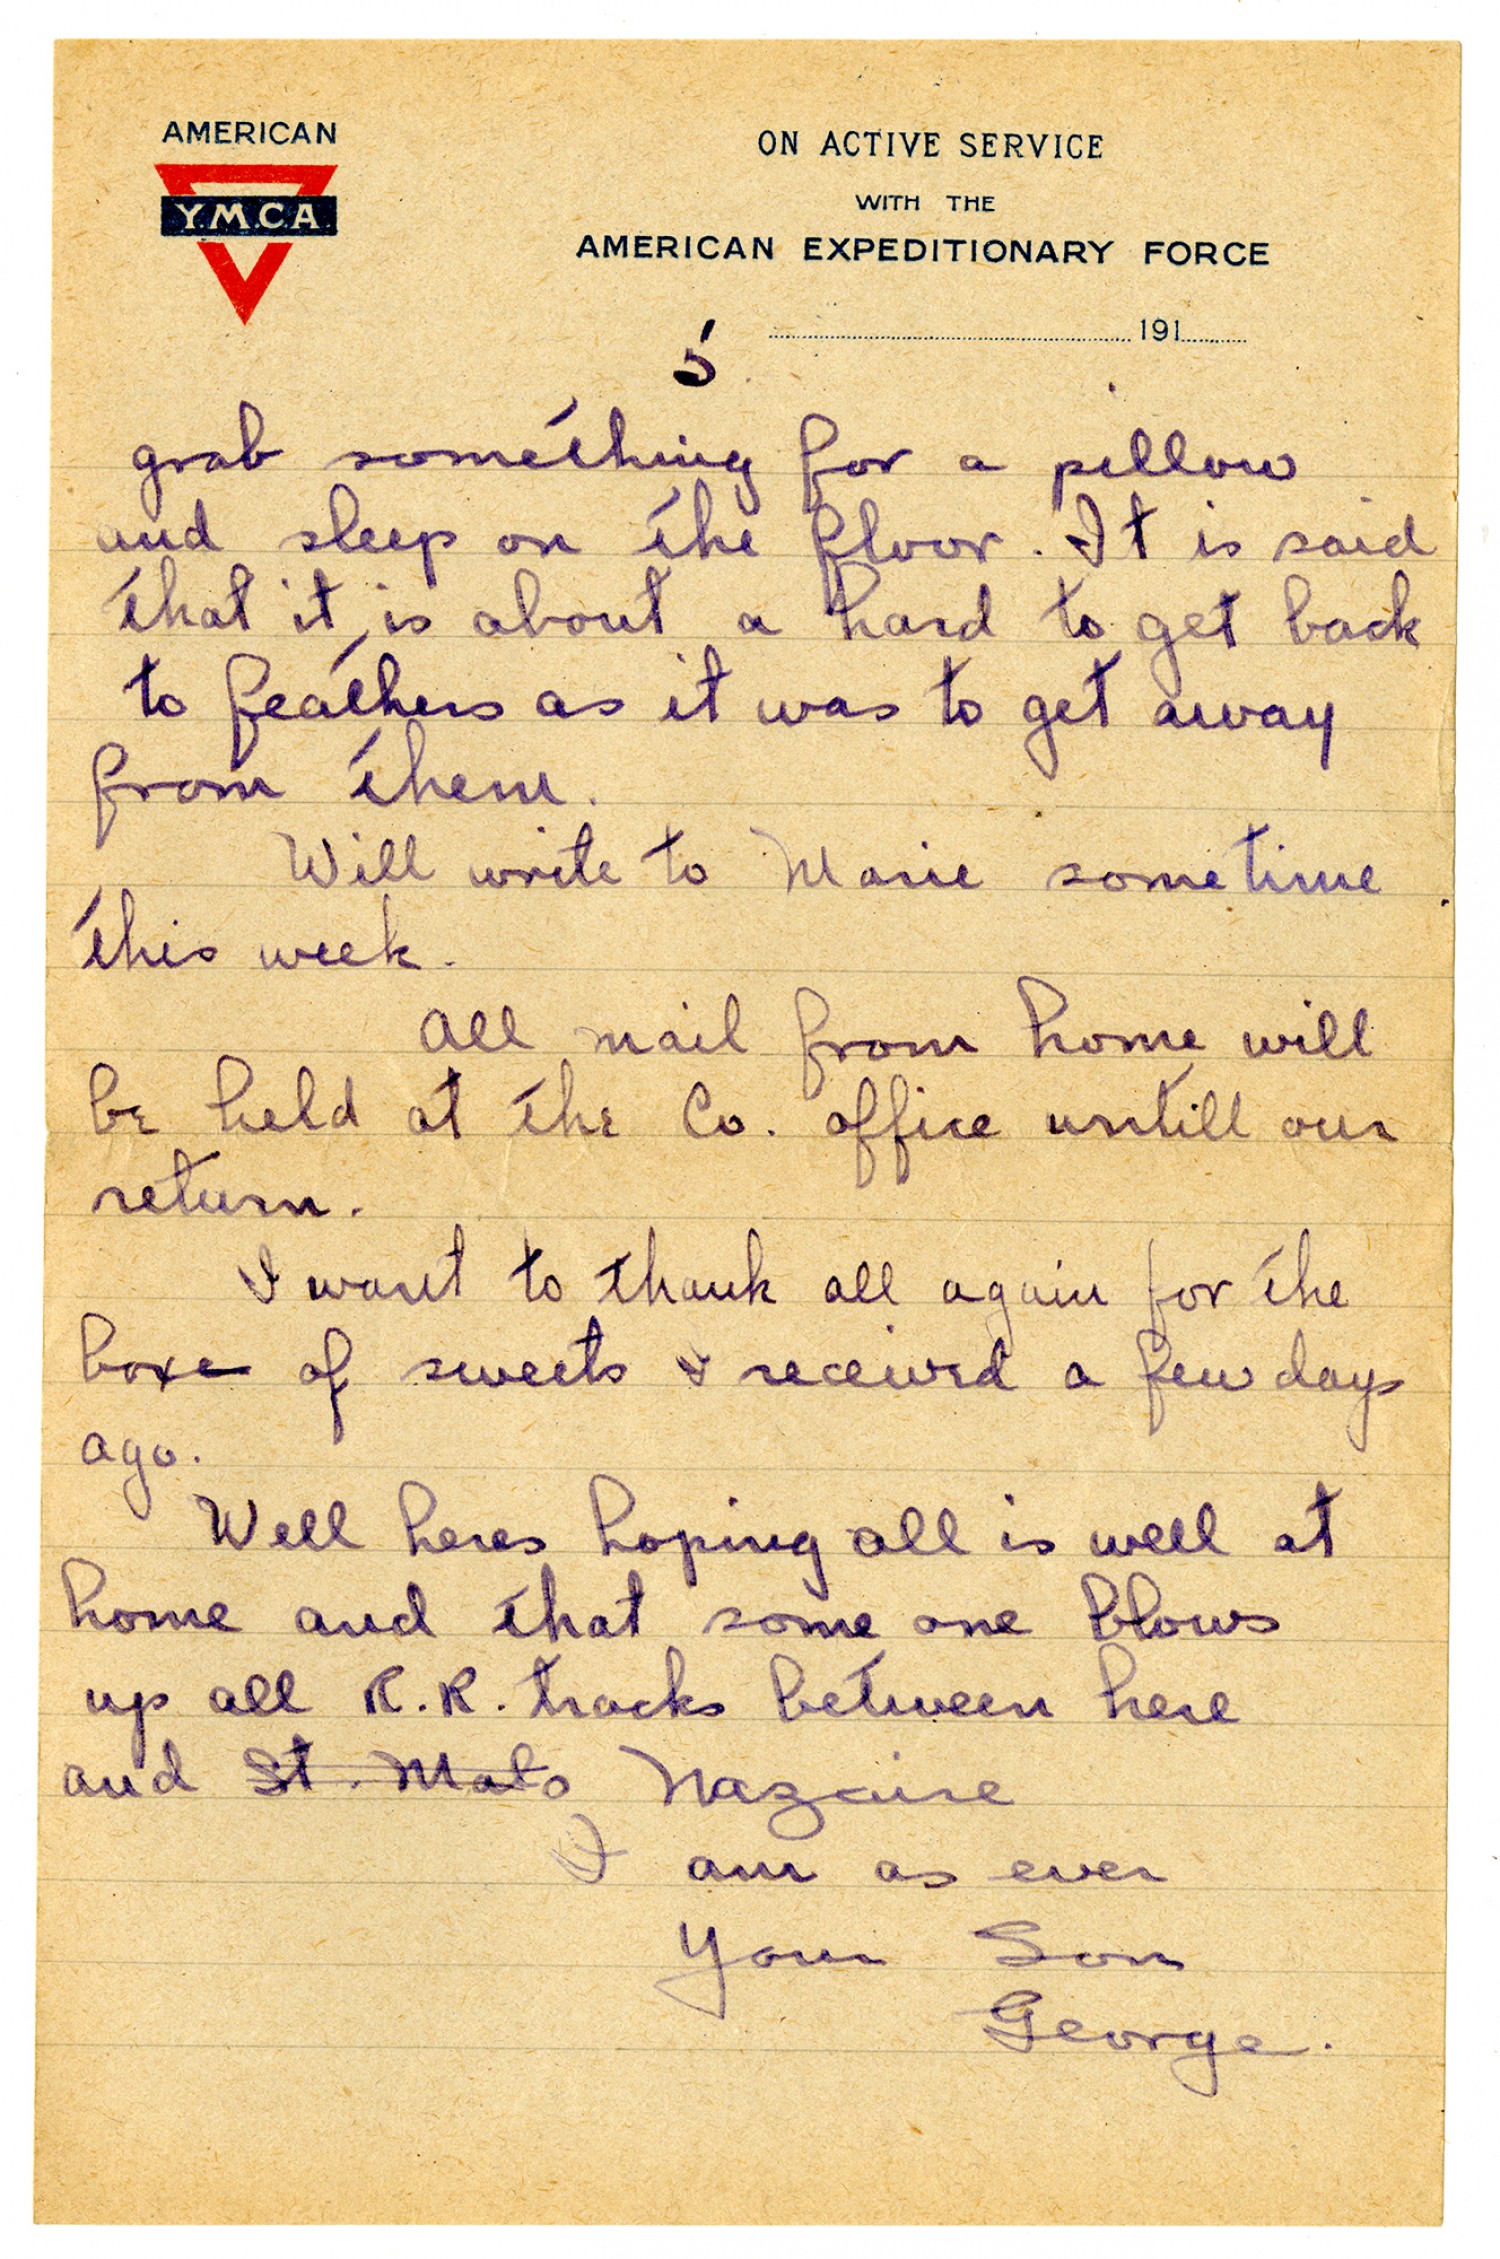 AMERICAN
Y.M.C.A.
ON ACTIVE SERVICE
WITH THE
AMERICAN EXPEDITIONARY FORCE
191
5
grab something for a pillow
and sleep on the floor. It is said
that it is about a hard to get back
to feathers as it was to get away
from them.
Will write to Marie sometime
this week.
All mail from home will
be held at the Co. office untill our
return.
I want to thank all again for the
boxe of sweets I received a few days
ago.
Well heres hoping all is well at
home and that some one blows
up all R.R. tracks between here
and St. Malo Nazaire
I am as ever
Your Son
George.